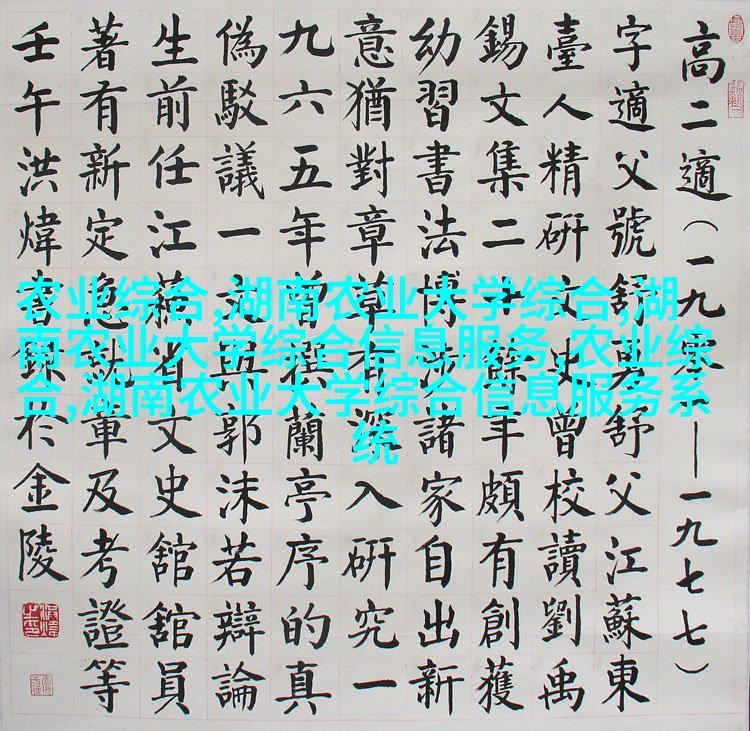 高二適（一九零三——一九七七）
字適父號舒鳧舒父江蘇東
臺人精研文史曾校讀劉禹
錫文集二十餘年頗有創獲
幼習書法博涉諸家自出新
意猶對章草有深入研究一
九六五年曾撰蘭亭序的真
偽駁議一文與郭沫若辯論
生前任江蘇省文史舘舘員
著有新定急就章及考證等
壬午洪煒書錄於金陵
农业综合,湖南农业大学综合,湖
南农业大学综合信息服务,农业综
合,湖南农业大学综合信息服务系
统